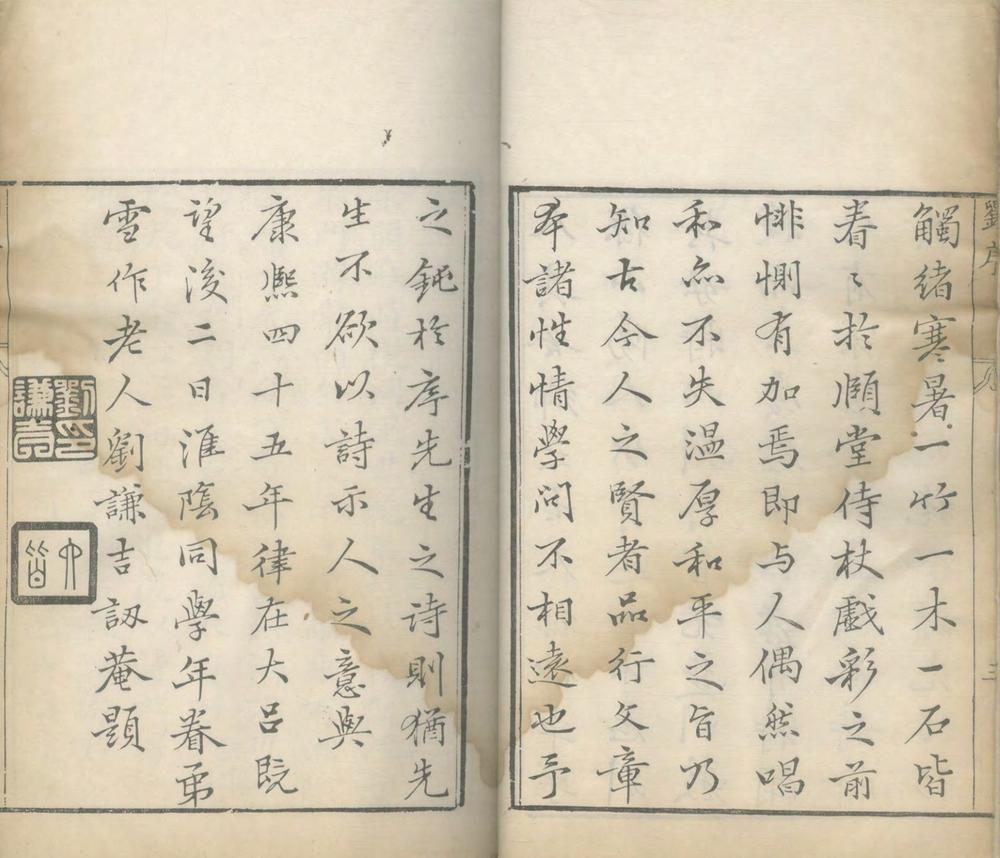 劉序
觸緒寒暑一竹一木一石皆
眷〻於頤堂侍杖戲彩之前
悱惻有加焉即与人偶然唱
和亦不失温厚和平之旨乃
知古今人之賢者品行文章
本諸性情學问不相遠也予
之鈍於序先生之詩則猶先
生不欲以詩示人之意與
康熙四十五年律在大吕既
望後二日淮陰同學年眷弟
雪作老人劉謙吉訒菴題
劉印謙吉